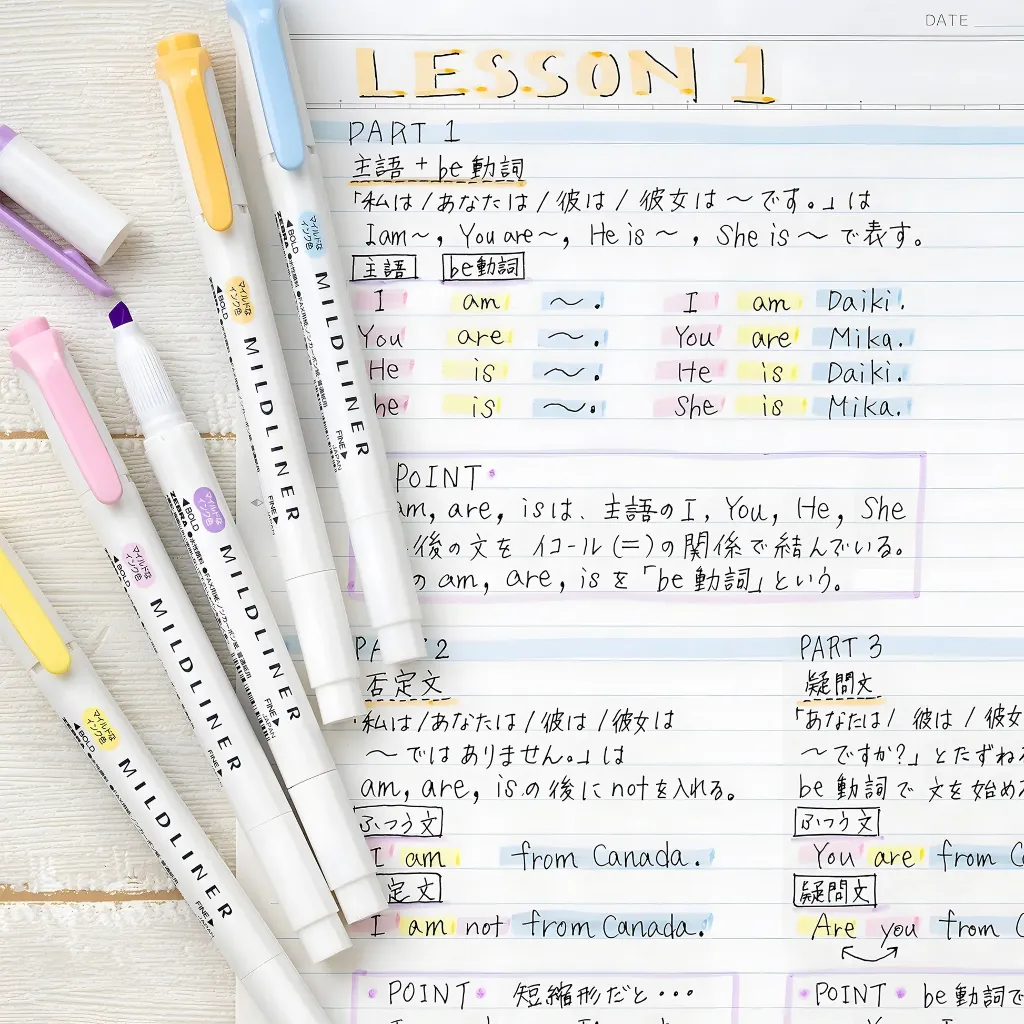 DATE
LESSON 1
PART 1
主語 + be動詞
「私は/あなたは/彼は/彼女は〜です。」は
I am〜, You are〜, He is〜, She is〜で表す。
主語 be動詞
I am 〜. I am Daiki.
You are 〜. You are Mika.
He is 〜. He is Daiki.
he is 〜. She is Mika.
POINT
am, are, isは、主語のI, You, He, She
後の文をイコール(=)の関係で結んでいる。
の am, are, isを「be動詞」という。
PART 2
否定文
私は/あなたは/彼は/彼女は
〜ではありません。」は
am, are, isの後にnotを入れる。
ふつう文
I am from Canada.
定文
I am not from Canada.
POINT 短縮形だと・・・
PART 3
疑問文
「あなたは/彼は/彼女
〜ですか?」とたずね
be動詞で文を始め
ふつう文
You are from
疑問文
Are you from
POINT be動詞で
マイルドな
インク色
◀BOLD
ZEBRA
MILDLINER
FINE▶
JAPAN
マイルドな
インク色
◀BOLD
MILDLINER
FINE▶
マイルドな
インク色
◀BOLD
ZEBRA
MILDLINER
FINE▶
JAPAN
マイルドな
インク色
◀BOLD
MILDLINER
FINE▶
マイルドな
インク色
◀BOLD
MILDLINER
FINE▶